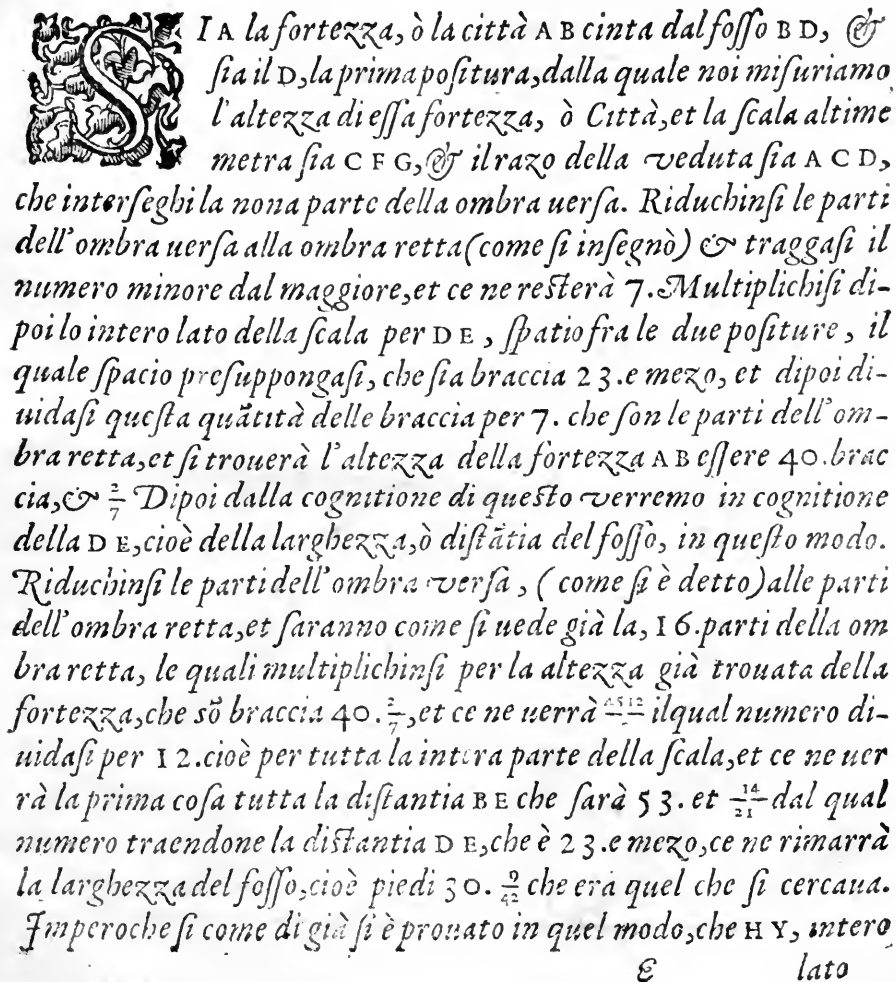 SIA la fortezza, ò la città A B cinta dal fosso B D, &
sia il D, la prima positura, dalla quale noi misuriamo
l'altezza di essa fortezza, ò Città, et la scala altime
metra sia C F G, & il razo della veduta sia A C D,
che interseghi la nona parte della ombra uersa. Riduchinsi le parti
dell'ombra uersa alla ombra retta (come si insegnò) & traggasi il
numero minore dal maggiore, et ce ne resterà 7. Multiplichisi di-
poi lo intero lato della scala per D E, spatio fra le due positure, il
quale spacio presuppongasi, che sia braccia 23. e mezo, et dipoi di-
uidasi questa quãtità delle braccia per 7. che son le parti dell'om-
bra retta, et si trouerà l'altezza della fortezza A B essere 40. brac
cia, & 2/7 Dipoi dalla cognitione di questo verremo in cognitione
della D E, cioè della larghezza, ò distãtia del fosso, in questo modo.
Riduchinsi le parti dell'ombra versa, (come si è detto) alle parti
dell'ombra retta, et saranno come si uede già la, 16. parti della om
bra retta, le quali multiplichinsi per la altezza già trouata della
fortezza, che sõ braccia 40. 2/7, et ce ne uerrà ilqual numero di-
uidasi per 12. cioè per tutta la intera parte della scala, et ce ne uer
rà la prima cosa tutta la distantia B E che sarà 53. et 14/21 dal qual
numero traendone la distantia D E, che è 23. e mezo, ce ne rimarrà
la larghezza del fosso, cioè piedi 30. 9/42 che era quel che si cercaua.
Imperoche si come di già si è prouato in quel modo, che H Y, intero
E lato